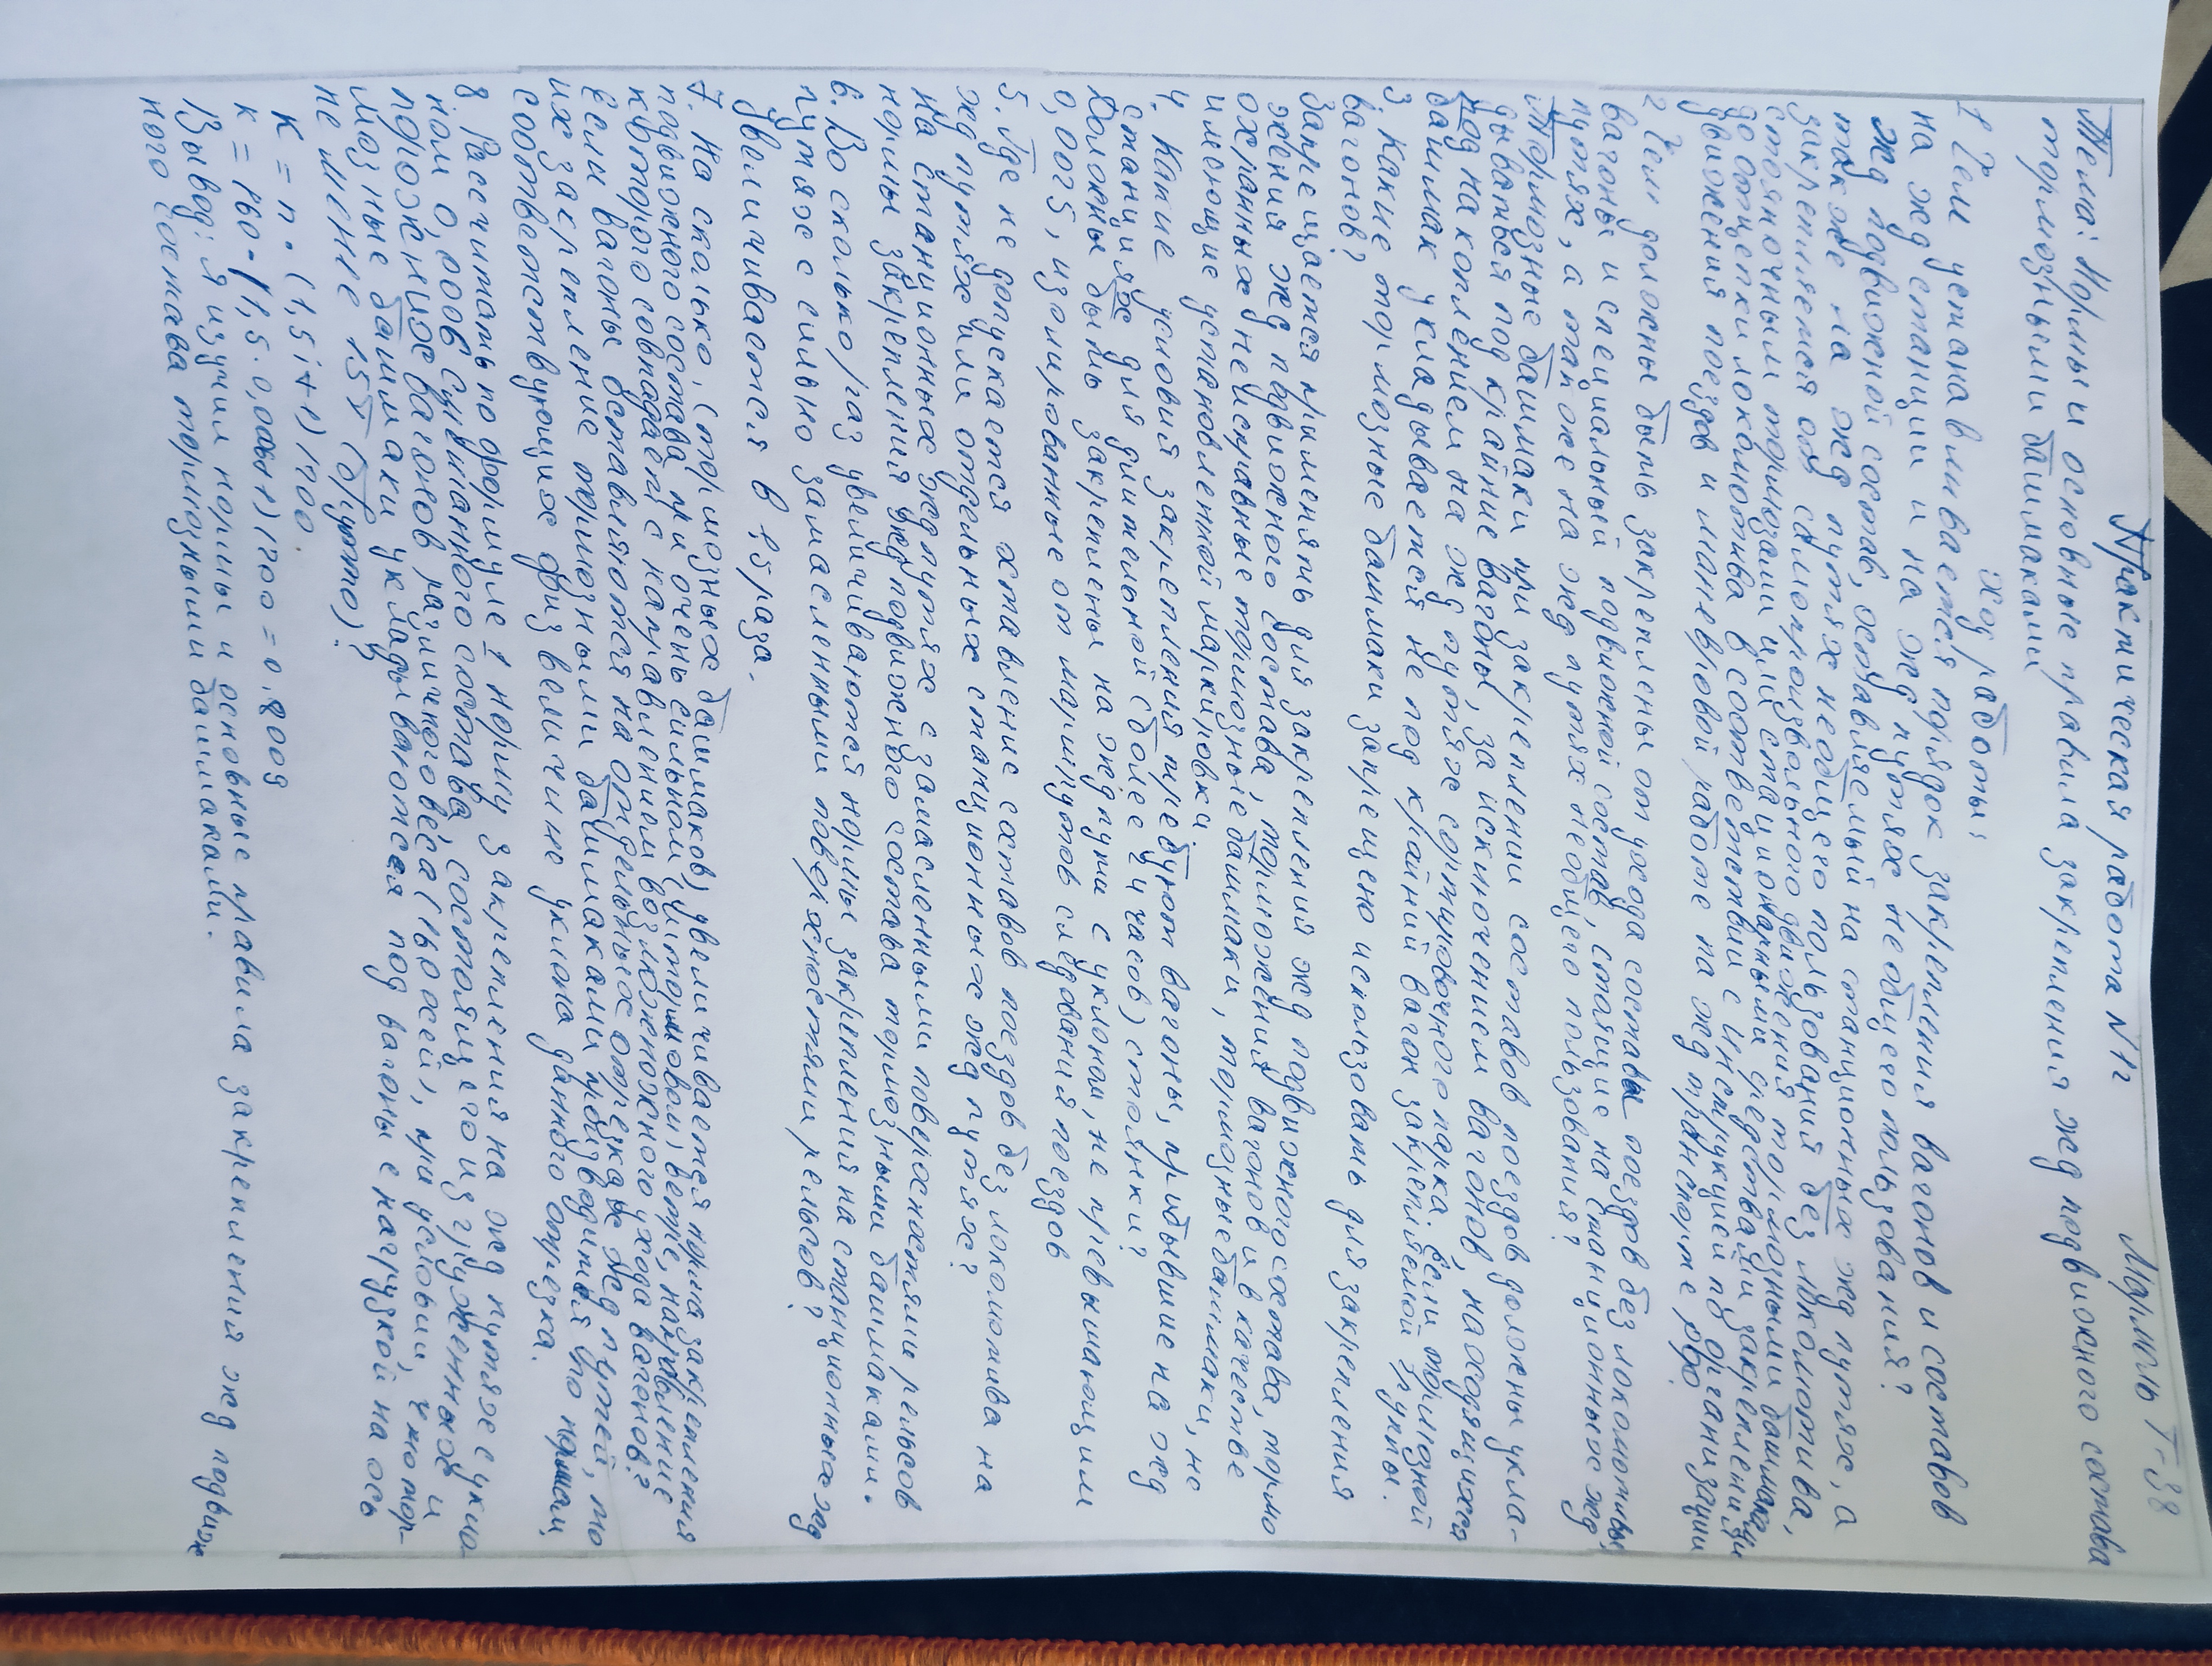 Практическая работа №12
Мармиль Т-38
Тема: Нормы и основные правила закрепления жд подвижного состава
тормозными башмаками
Ход работы:
1 Чем устанавливается порядок закрепления вагонов и составов
на жд станции и на жд путях необщего пользования?
жд подвижной состав, оставляемый на станционных жд путях, а
также на жд путях необщего пользования без локомотива,
закрепляется от самопроизвольного движения тормозными башмаками,
стояночными тормозами или стационарными средствами закрепления
до отцепки локомотива в соответствии с инструкцией по организации
движения поездов и маневровой работе на жд транспорте РФ.
2 Чем должны быть закреплены от ухода состава поездов без локомотива,
вагоны и специальный подвижной состав, стоящие на станционных жд
путях, а также на жд путях необщего пользования?
Тормозные башмаки при закреплении составов поездов должны укла-
дываться под крайние вагоны, за исключением вагонов, находящихся
под накоплением на жд путях сортировочного парка, если тормозной
башмак укладывается не под крайний вагон закрепляемой группы.
3. Какие тормозные башмаки запрещено использовать для закрепления
вагонов?
Запрещается применять для закрепления жд подвижного состава, тормо
жения жд подвижного состава, торможения вагонов и в качестве
охранных неисправные тормозные башмаки, тормозные башмаки, не
имеющие установленной маркировки
4. Какие условия закрепления требуют вагоны, прибывшие на жд
станциях для длительной (более 24 часов) стоянки?
Должны быть закреплены на жд пути с уклоном, не превышающим
0,0025, изолированные от маршрутов следования поездов
5. Где не допускается оставление составов поездов без локомотива на
жд путях или отдельных станционных жд путях?
На станционных жд путях с замасленными поверхностями рельсов
нормы закрепления жд подвижного состава тормозными башмаками.
6. Во сколько раз увеличиваются нормы закрепления на станционных жд
путях с сильно замасленными поверхностями рельсов?
Увеличивается в 1,5 раза.
7. На сколько, (тормозных башмаков) увеличивается норма закрепления
подвижного состава при очень сильном (штормовом) ветре, направление
которого совпадает с направлением возможного ухода вагонов?
Если вагоны оставляются на отдельных отрезках жд путей, то
их закрепление тормозными башмаками производится по нормам,
соответствующих физ величине уклона данного отрезка.
8. Рассчитать по формуле 1 норму закрепления на жд путях с укло
ном 0,0005 сцепного состава, состоящего из груженных и
порожних вагонов различного веса (160 осей), при условии, что тор-
мозные башмаки укладываются под вагоны с нагрузкой на ось
не менее 15т (брутто)?
К = n · (1,5i + 1) / 200.
К = 160 · (1,5 · 0,0005+1) / 200 = 0,8009
Вывод: я изучил нормы и основные правила закрепления жд подвиж
ного состава тормозными башмаками.